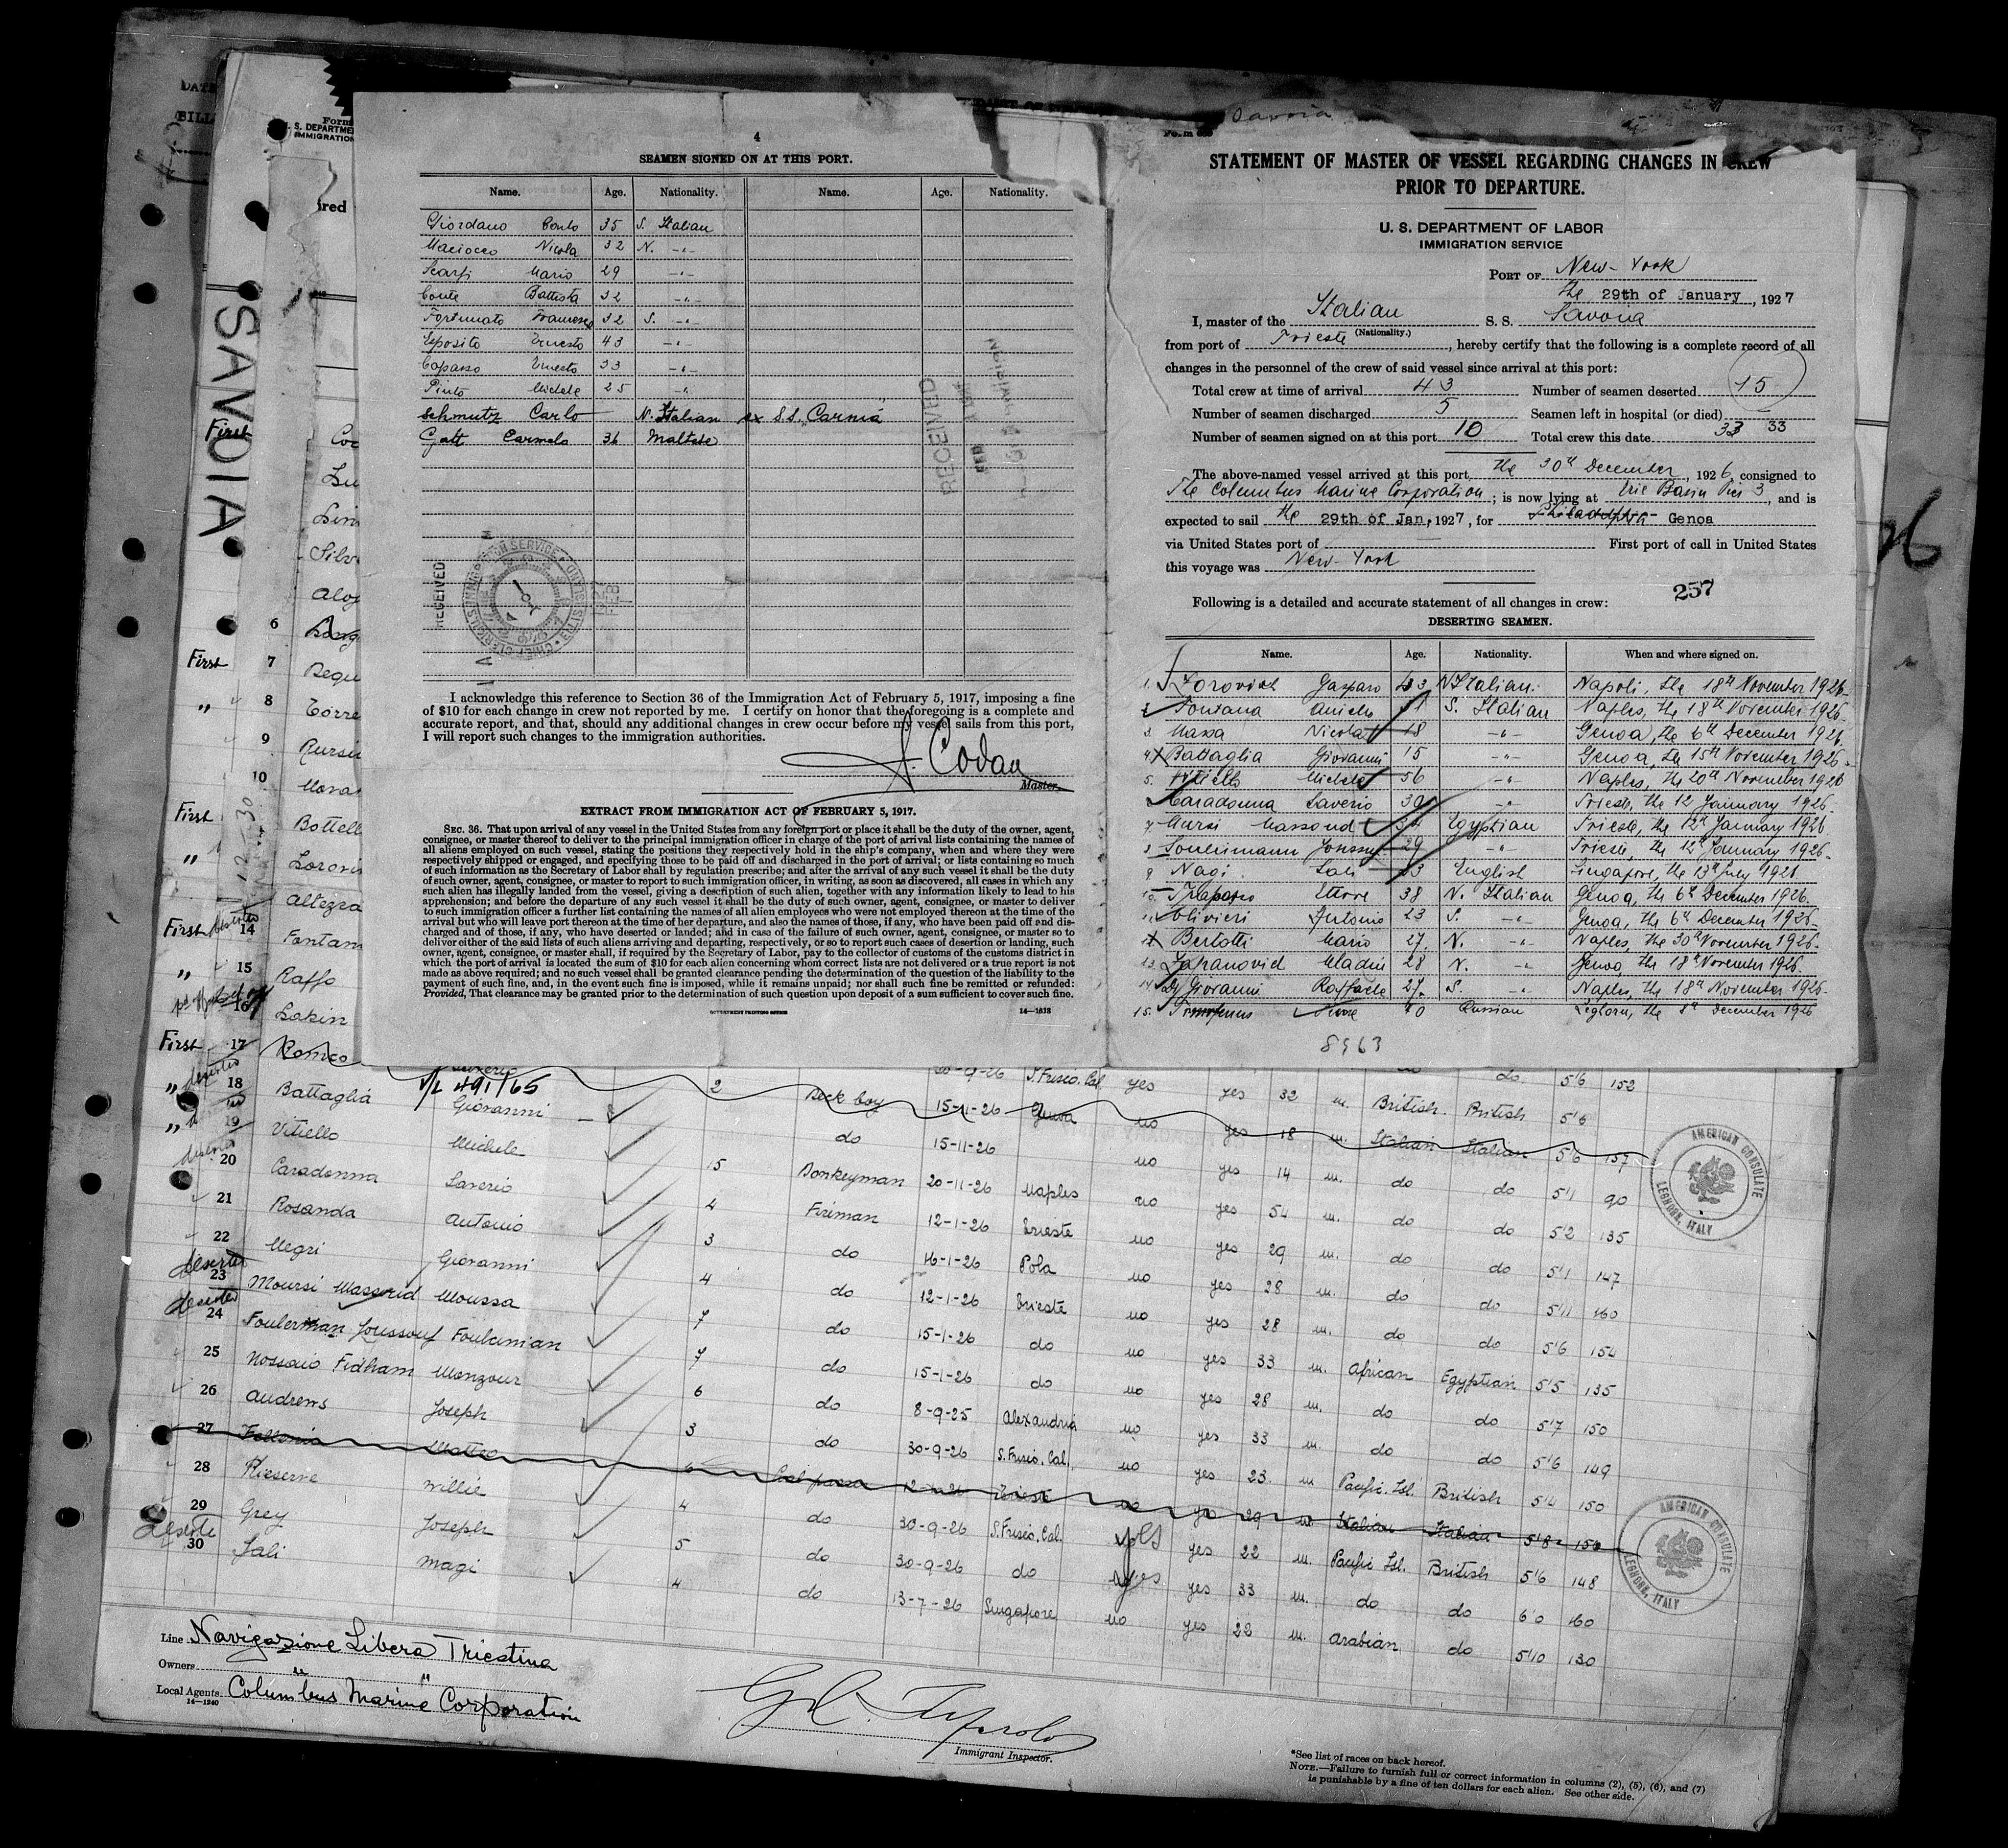 4
SEAMEN SIGNED ON AT THIS PORT.
Name. Age. Nationality. Name. Age. Nationality.
Giordano 35 S. Italian
Maciocco Nicola 32 N. -"-
Scarfi Mario 29 -"-
Conte Battista 32 -"-
Fortunato Francesco 32 S. -"-
Esposito Ernesto 43 -"-
Capasso Ernesto 33 -"-
Pinto Michele 25 -"-
Schmutz Carlo N. Italian ex S.S. "Carnia"
Gatt Carmelo 36 Maltese
RECEIVED
RECEIVED
I acknowledge this reference to Section 36 of the Immigration Act of February 5, 1917, imposing a fine
of $10 for each change in crew not reported by me. I certify on honor that the foregoing is a complete and
accurate report, and that, should any additional changes in crew occur before my vessel sails from this port,
I will report such changes to the immigration authorities.
Master.
EXTRACT FROM IMMIGRATION ACT OF FEBRUARY 5, 1917.
SEC. 36. That upon arrival of any vessel in the United States from any foreign port or place it shall be the duty of the owner, agent,
consignee, or master thereof to deliver to the principal immigration officer in charge of the port of arrival lists containing the names of
all aliens employed on such vessel, stating the positions they respectively hold in the ship's company, when and where they were
respectively shipped or engaged, and specifying those to be paid off and discharged in the port of arrival; or lists containing so much
of such information as the Secretary of Labor shall by regulation prescribe; and after the arrival of any such vessel it shall be the duty
of such owner, agent, consignee, or master to report to such immigration officer, in writing, as soon as discovered, all cases in which any
such alien has illegally landed from the vessel, giving a description of such alien, together with any information likely to lead to his
apprehension; and before the departure of any such vessel it shall be the duty of such owner, agent, consignee, or master to deliver
to such immigration officer a further list containing the names of all alien employees who were not employed thereon at the time of the
arrival but who will leave port thereon at the time of her departure, and also the names of those, if any, who have been paid off and dis-
charged and of those, if any, who have deserted or landed; and in case of the failure of such owner, agent, consignee, or master so to
deliver either of the said lists of such aliens arriving and departing, respectively, or so to report such cases of desertion or landing, such
owner, agent, consignee, or master, shall, if required by the Secretary of Labor, pay to the collector of customs of the customs district in
which the port of arrival is located the sum of $10 for each alien concerning whom correct lists are not delivered or a true report is not
made as above required; and no such vessel shall be granted clearance pending the determination of the question of the liability to the
payment of such fine, and, in the event such fine is imposed, while it remains unpaid; nor shall such fine be remitted or refunded:
Provided, That clearance may be granted prior to the determination of such question upon deposit of a sum sufficient to cover such fine.
GOVERNMENT PRINTING OFFICE 14-1613
STATEMENT OF MASTER OF VESSEL REGARDING CHANGES IN CREW
PRIOR TO DEPARTURE.
U. S. DEPARTMENT OF LABOR
IMMIGRATION SERVICE
PORT OF New-York
the 29th of January, 1927
I, master of the Italian S. S. Savoia
(Nationality.)
from port of Trieste, hereby certify that the following is a complete record of all
changes in the personnel of the crew of said vessel since arrival at this port:
Total crew at time of arrival 43 Number of seamen deserted 15
Number of seamen discharged 5 Seamen left in hospital (or died)
Number of seamen signed on at this port 10 Total crew this date 33 33
The above-named vessel arrived at this port the 30th December, 1926, consigned to
The Columbus Marine Corporation; is now lying at Erie Basin Pier 3, and is
expected to sail the 29th of Jan, 1927, for Philadelphia Genoa
via United States port of First port of call in United States
this voyage was New-York
257
Following is a detailed and accurate statement of all changes in crew:
DESERTING SEAMEN.
Name. Age. Nationality. When and where signed on.
1. Gasparo 43 N. Italian Napoli, the 18th November 1926
2. Fontana Aniello S. Italian Naples, the 18th November 1926
3. Massa Nicola 18 -"- Genoa, the 6th December 1926
4. Battaglia Giovanni 15 -"- Genoa, the 15th November 1926
5. Vitiello Michele 56 -"- Naples, the 20th November 1926
Caradonna Saverio 30 -"- Trieste, the 12 January 1926
7. Mursi Massoud Egyptian Trieste, the 12th January 1926
8. Souleimann 29 -"- Trieste, the 12th January 1926
9. Nagi Sali 23 English Singapore, the 13th July 1926
10. Ettore 38 N. Italian Genoa, the 6th December 1926
11. Olivieri Antonio 23 S. -"- Genoa, the 6th December 1926
12. Bertotti Mario 27 N. -"- Naples, the 30th November 1926
13. 28 N. -"- Genoa, the 18th November 1926
14. Di Giovanni Raffaele 27 S. -"- Naples, the 18th November 1926
15. Russian Leghorn, the 8th December 1926
8963
SAVOIA
First
6
First 7
" 8
9
10
First
"
First deserted 14
" 15 Raffo
16 Lakin
First 17 Romeo
20-9-26 S.Frisco.Cal. yes yes 32 m. British British 5'6 152
deserted 18 Battaglia Giovanni 2 Deck boy 15-11-26 Genoa no yes 18 m. Italian Italian 5'6 157
19 Vitiello Michele do 15-11-26 no yes 14 m. do do 5'1 90
deserted 20 Caradonna Saverio 15 Donkeyman 20-11-26 Naples no yes 54 m. do do 5'2 135
21 Rosanda Antonio 4 Fireman 12-1-26 Trieste no yes 29 m. do do 5'1 147
22 Negri Giovanni 3 do 16-1-26 Pola no yes 28 m. do do 5'11 160
deserted 23 Moursi Massoud Moussa 4 do 12-1-26 Trieste no yes 28 m. do do 5'6 154
deserted 24 Fouleiman Joussouf Fouleiman 7 do 15-1-26 do no yes 33 m. African Egyptian 5'5 135
25 Nossaio Fidham Monzour 7 do 15-1-26 do no yes 28 m. do do 5'7 150
26 Andrews Joseph 6 do 8-9-25 Alexandria no yes 33 m. do do 5'6 149
27 Matteo 3 do 30-9-26 S.Frisco.Cal. no yes 23 m Pacific Isl. British 5'4 150
28 Willie Trieste 29 m Italian Italian 5'8 150
29 Grey Joseph 4 do 30-9-26 S.Frisco.Cal. yes yes 22 m. Pacific Isl. British 5'6 148
30 Sali Magi 5 do 30-9-26 do yes yes 33 m. do do 6'0 160
4 do 13-7-26 Singapore no yes 22 m. Arabian do 5'10 130
V/L 491/65
AMERICAN CONSULATE
LEGHORN, ITALY
AMERICAN CONSULATE
LEGHORN, ITALY
Line Navigazione Libera Triestina
Owners "
Local Agents Columbus Marine Corporation
14-1240
Immigrant Inspector.
*See list of races on back hereof.
NOTE.—Failure to furnish full or correct information in columns (2), (5), (6), and (7)
is punishable by a fine of ten dollars for each alien. See other side.